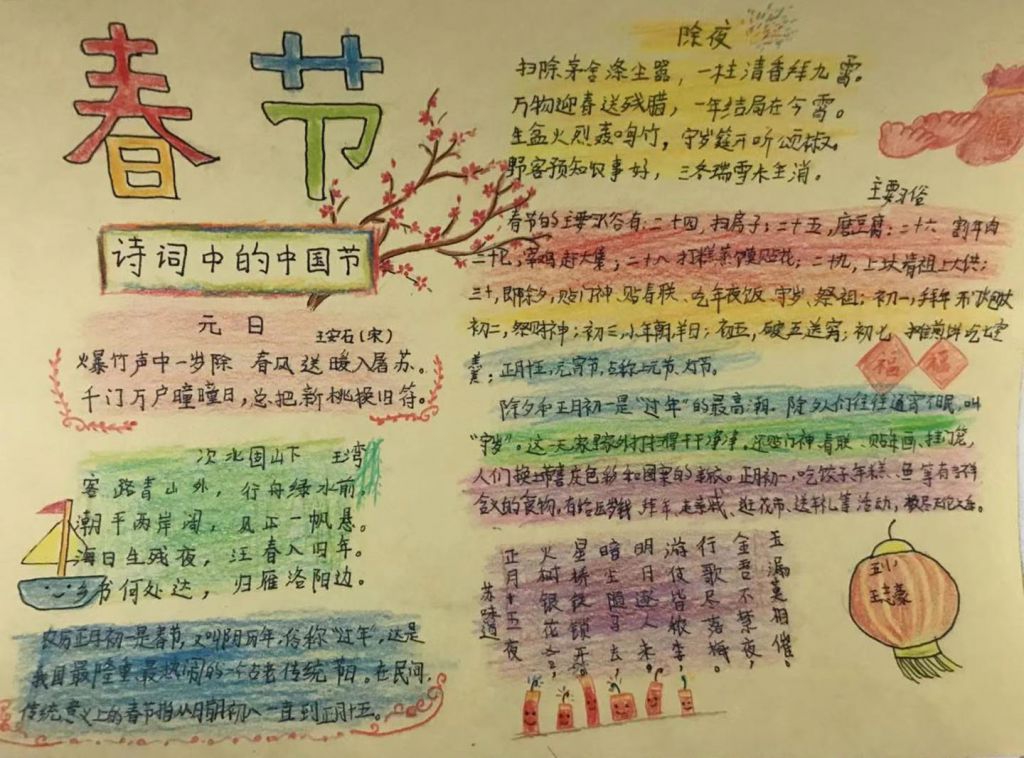 春节
诗词中的中国节
元日
王安石(宋)
爆竹声中一岁除 春风送暖入屠苏。
千门万户曈曈日,总把新桃换旧符。
次北固山下 王湾
客路青山外,行舟绿水前。
潮平两岸阔,风正一帆悬。
海日生残夜,江春入旧年。
乡书何处达,归雁洛阳边。
农历正月初一是春节,又叫阴历年,俗称“过年”,这是
我国最隆重、最热闹的一个古老传统节日。在民间,
传统意义上的春节指从腊月初八一直到正月十五。
除夜
扫除茅舍涤尘嚣,一柱清香拜九霄。
万物迎春送残腊,一年结局在今霄。
生盆火烈轰鸣竹,守岁筵开听颂椒。
野客预知农事好,三冬瑞雪未全消。
主要习俗
春节的主要习俗有:二十四,扫房子;二十五,磨豆腐;二十六 割年肉
二十七,宰鸡赶大集;二十八 打糕蒸馍贴花;二十九,上坟请祖上大供;
三十,即除夕,贴门神、贴春联、吃年夜饭、守岁、祭祖;初一,拜年
初二,祭财神;初三,小年朝羊日;初五,破五送穷;初七,
正月十五,元宵节,占称上元节、灯节。
除夕和正月初一是“过年”的最高潮。除夕人们往往通宵不眠,叫
“守岁”。这一天家里家外打扫得干干净净,还贴门神、春联、贴年画、挂门笼,
人们换上带喜庆色彩和图案的新衣。正月初一,吃饺子、年糕、鱼等有吉祥
含义的食物,有给压岁钱、拜年、走亲戚、逛花市、送社火等活动,
正月十五夜
苏味道
火树银花合,
星桥铁锁开。
暗尘随马去
明月逐人来。
游伎皆秾李,
行歌尽落梅。
金吾不禁夜,
玉漏莫相催。
福 福